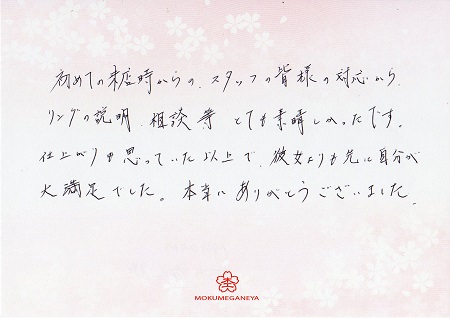 初めての来店時からの、スタッフの皆様の対応から
リングの説明、相談等 とても素晴しかったです。
仕上がりも思っていた以上で、彼女よりも先に自分が
大満足でした。本当にありがとうございました。
MOKUMEGANEYA